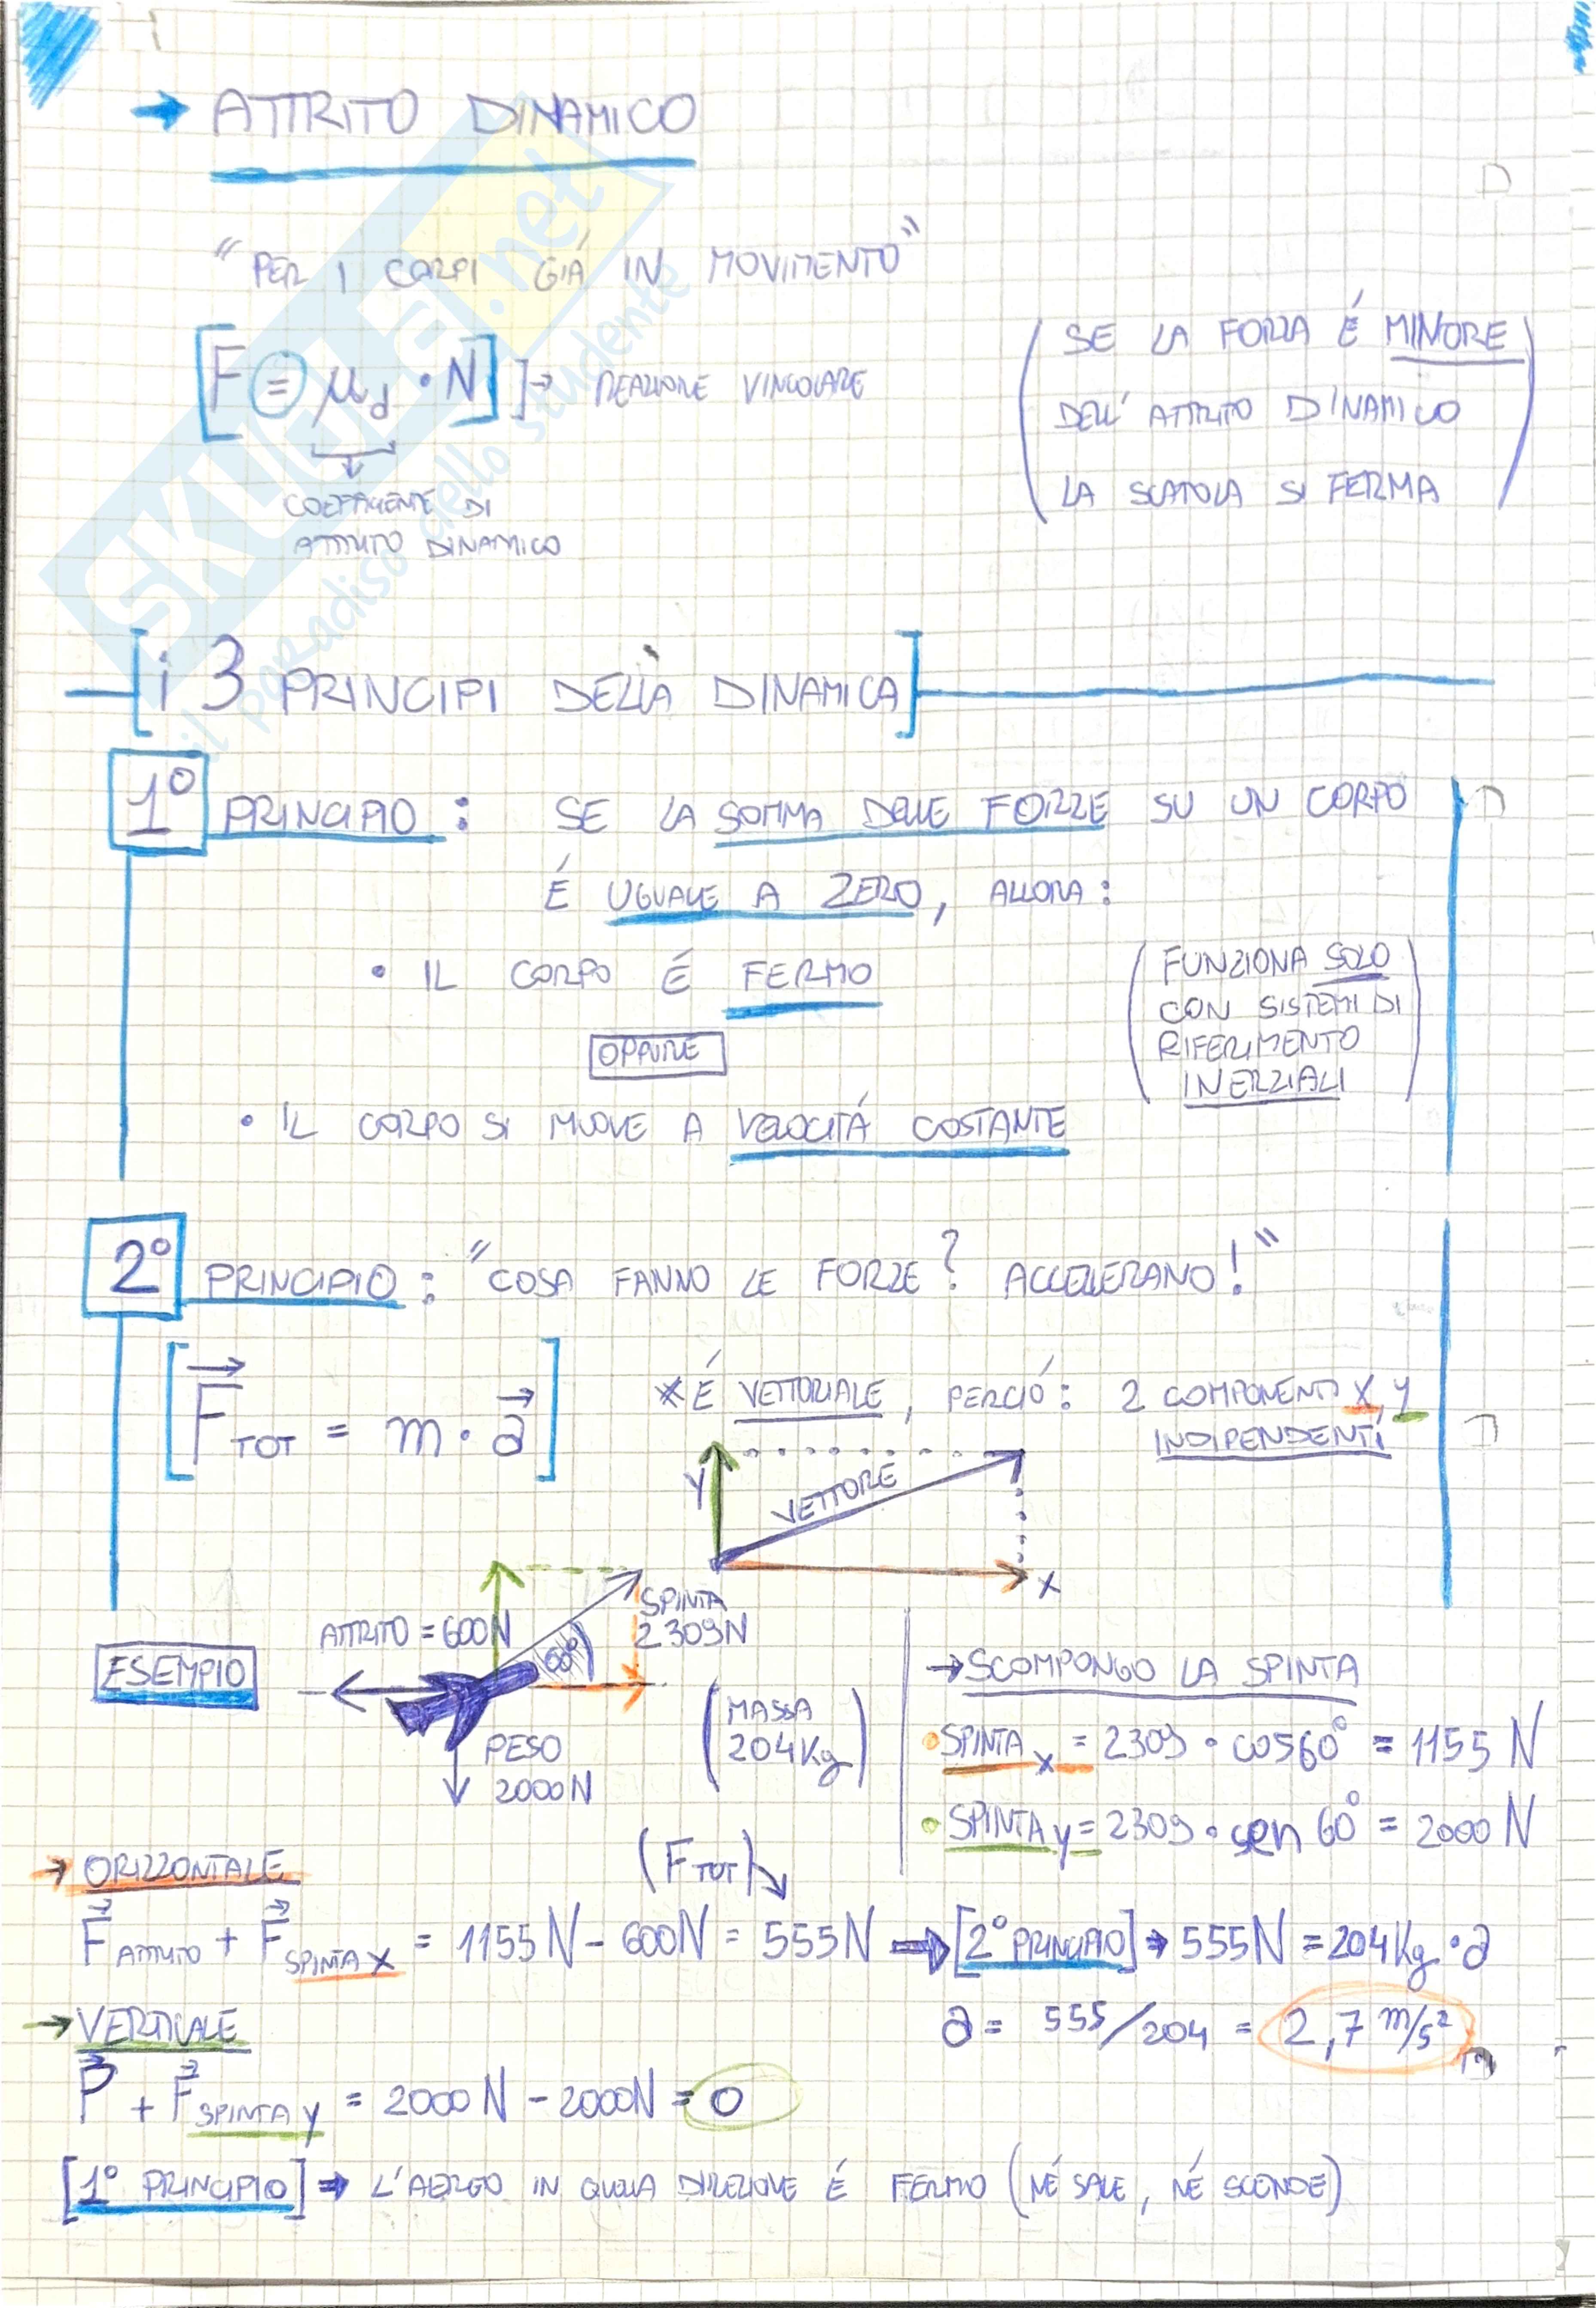 → ATTRITO DINAMICO
"PER I CORPI GIÁ IN MOVIMENTO"
[F = μd · N] ]→ REAZIONE VINCOLARE
COEFFICIENTE DI
ATTRITO DINAMICO
(SE LA FORZA É MINORE
DELL'ATTRITO DINAMICO
LA SCATOLA SI FERMA)
SKUOLA.net
il paradiso dello studente
[i 3 PRINCIPI DELLA DINAMICA]
1° PRINCIPIO: SE LA SOMMA DELLE FORZE SU UN CORPO
É UGUALE A ZERO, ALLORA:
• IL CORPO É FERMO
OPPURE
• IL CORPO SI MUOVE A VELOCITÁ COSTANTE
(FUNZIONA SOLO
CON SISTEMI DI
RIFERIMENTO
INERZIALI)
2° PRINCIPIO: "COSA FANNO LE FORZE? ACCELERANO!"
[F⃗TOT = m · a⃗]
* É VETTORIALE, PERCIÓ: 2 COMPONENTI X, Y
INDIPENDENTI
Y
VETTORE
X
ESEMPIO
ATTRITO = 600N
SPINTA
2309N
60°
PESO
2000N
(MASSA
204Kg)
→ SCOMPONGO LA SPINTA
• SPINTA x = 2309 · cos60° = 1155 N
• SPINTA y = 2309 · sen 60° = 2000 N
→ ORIZZONTALE
(FTOT)
F⃗ATTRITO + F⃗SPINTA X = 1155N - 600N = 555N → [2° PRINCIPIO] → 555N = 204Kg · a
a = 555/204 = 2,7 m/s²
→ VERTICALE
P⃗ + F⃗SPINTA Y = 2000N - 2000N = 0
[1° PRINCIPIO] → L'AEREO IN QUELLA DIREZIONE É FERMO (NÉ SALE, NÉ SCENDE)